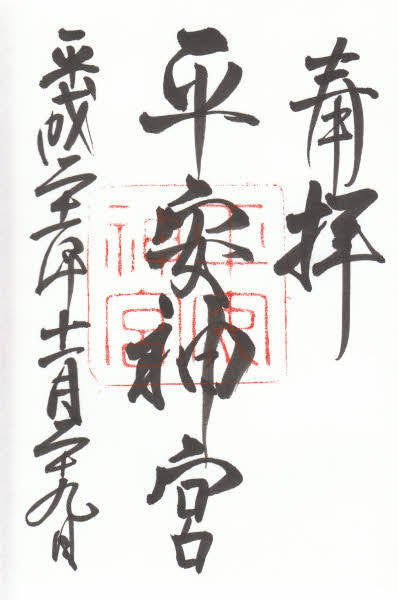 奉拝
平安神宮
平成二十一年十一月二十九日
平安
神宮